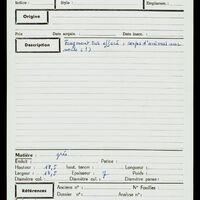 Indice : Style : Emplacem. :
Origine
Prix Date acquis. Date inscr. :
Description Fragment très effacé ; corps d'animal sur
Matière : grès.
Enduit : Patine :
Hauteur Haut. tenon : Longueur :
Largeur : Epaisseur : 7 Poids :
Diamètre Diamètre col. : Diamètre panse :
Références Ancien n° : N° Fouilles :
Dossier n° : Analyse n° :